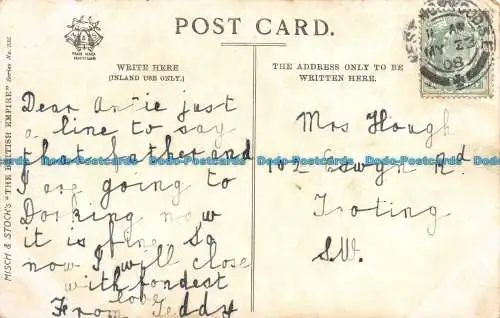 POST CARD.
WRITE HERE
(INLAND USE ONLY.)
THE ADDRESS ONLY TO BE
WRITTEN HERE.
MISCH & STOCK'S "THE BRITISH EMPIRE" Series No.
Dear Antie just
a line to say
that father and
I are going to
Dorking now
it is fine So
now I will close
with fondest
love
From Teddy
Mrs Hough
102 Eswyn Rd
Tooting
S.W.
MY 23
08
Dodo-Postcards Dodo-Postcards Dodo-Postcards Dodo-Postcards Dodo-Postcards